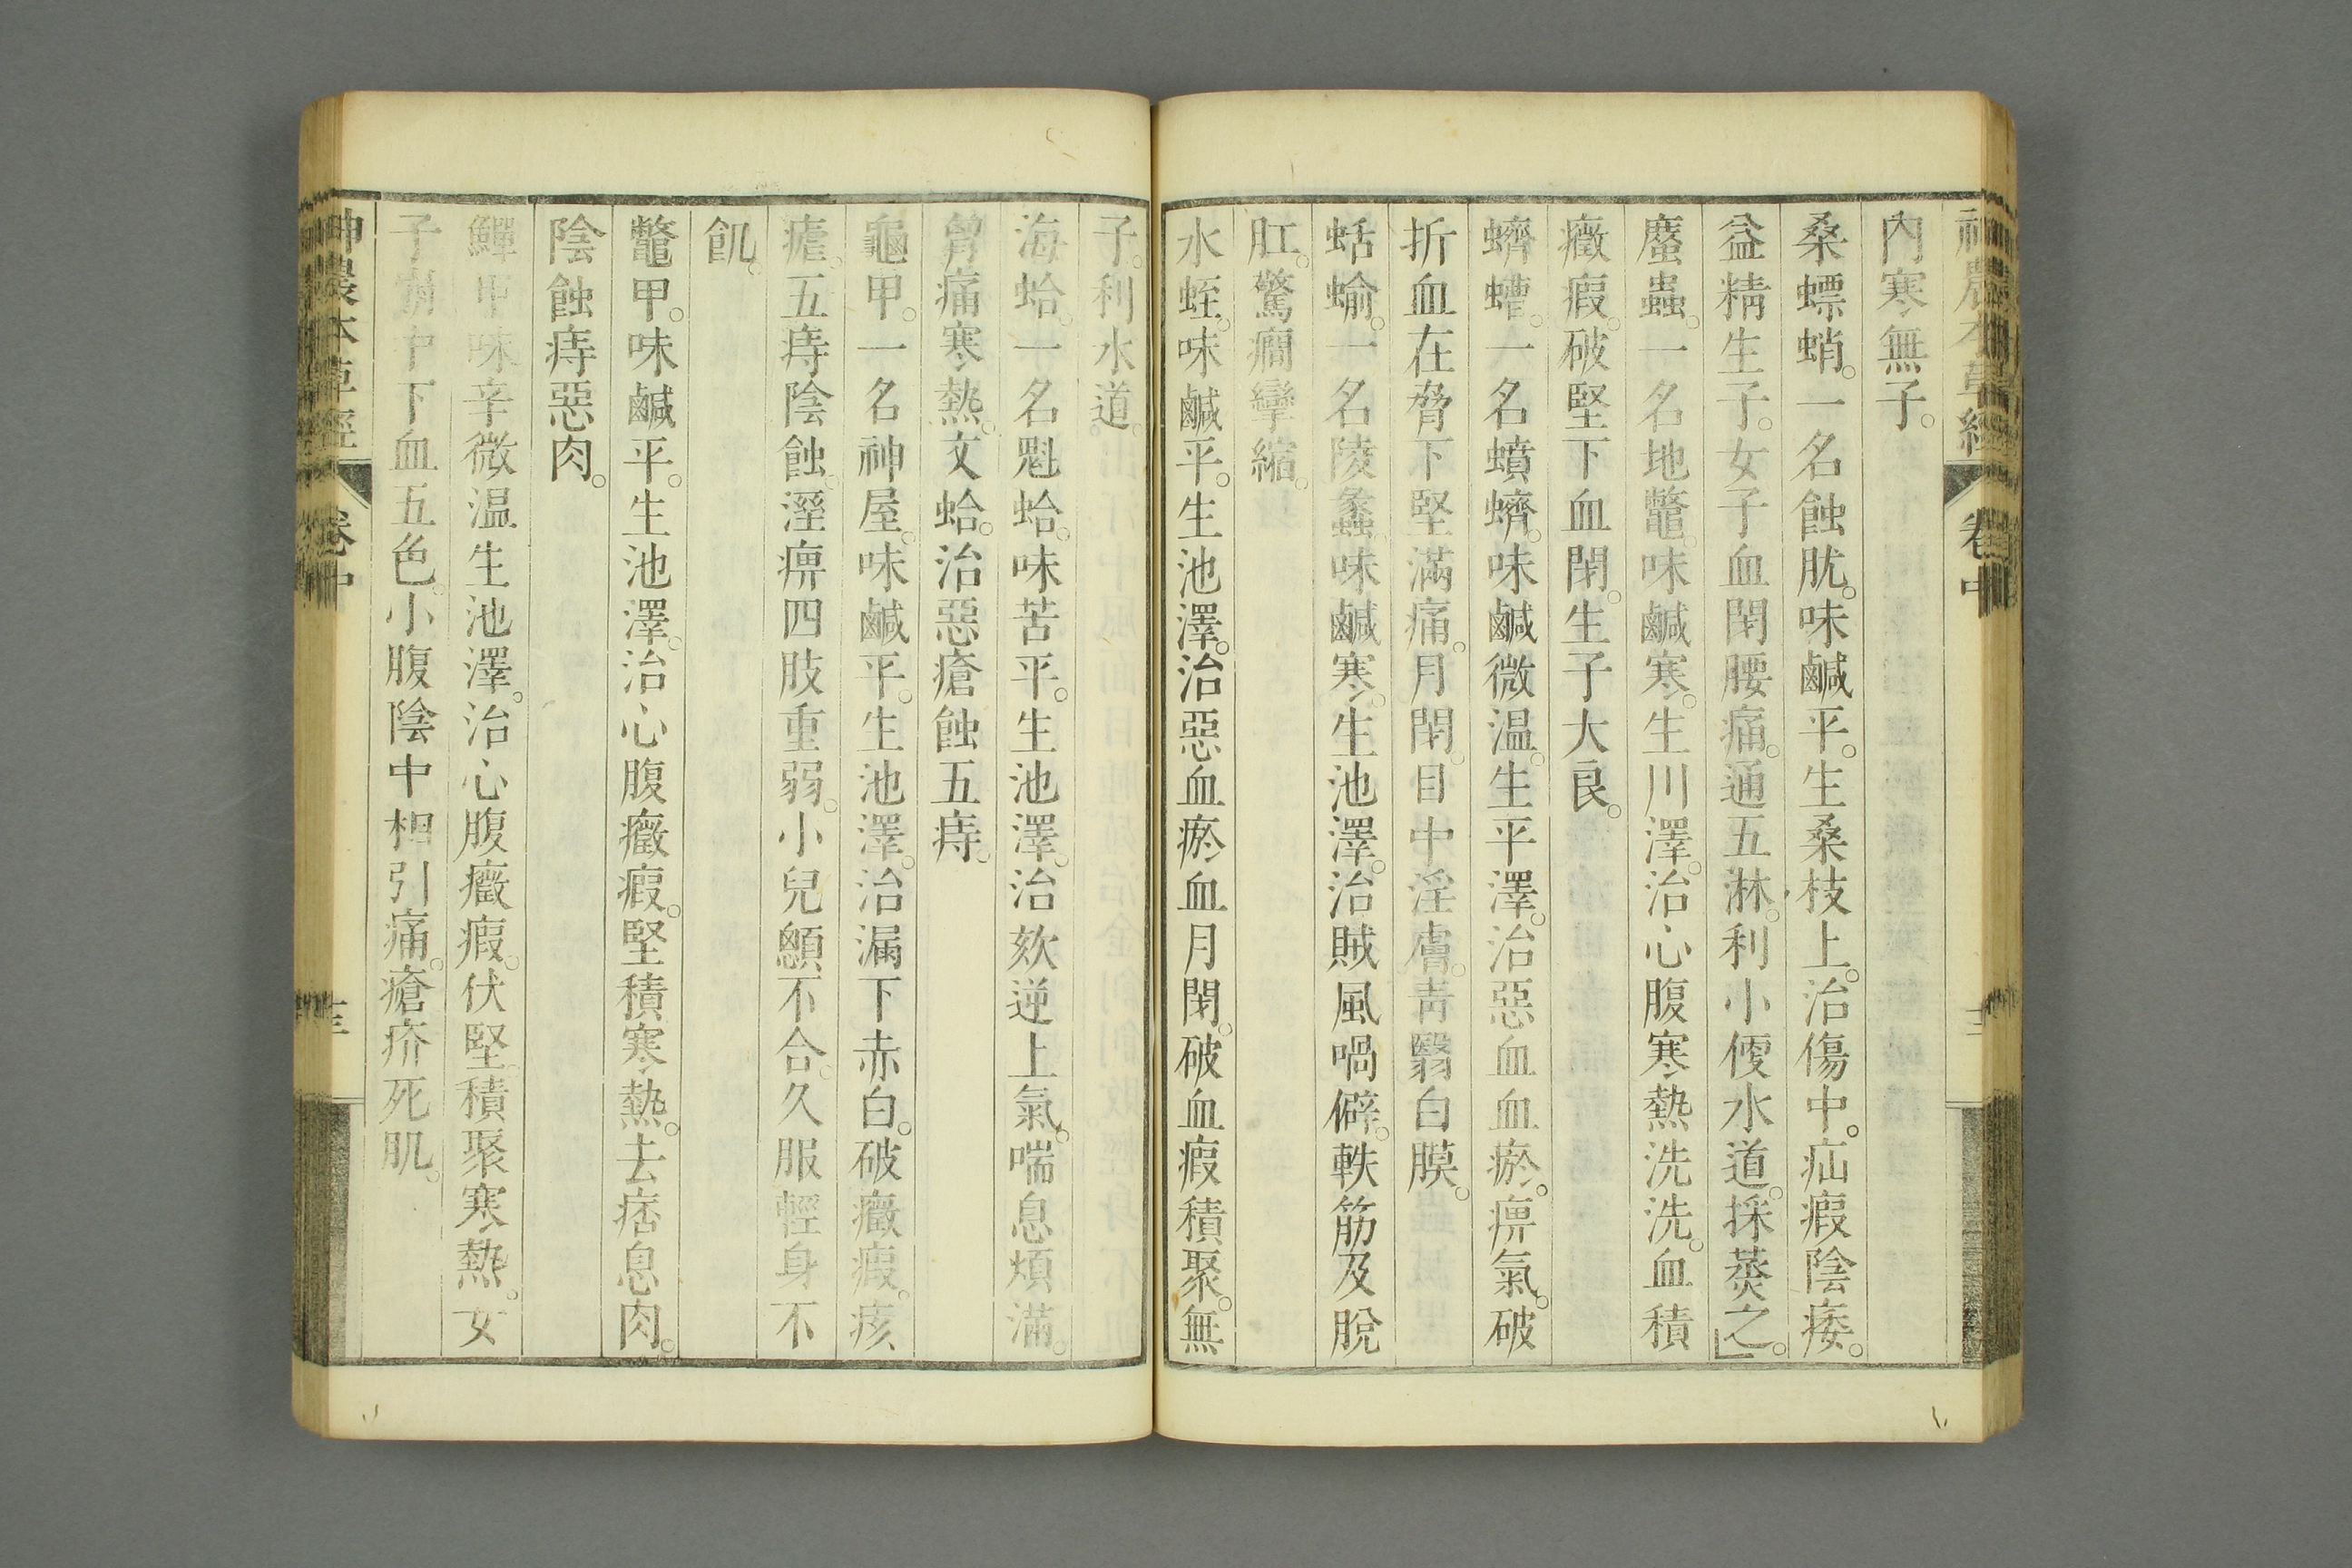 神農本草經
卷中
內寒無子。
桑螵蛸。一名蝕肬。味鹹平。生桑枝上。治傷中。疝瘕陰痿。
益精生子。女子血閉腰痛。通五淋。利小便水道。採蒸之。」
䗪蟲。一名地鼈。味鹹寒。生川澤。治心腹寒熱洗洗。血積
癥瘕。破堅下血閉。生子大良。
蠐螬。一名蟦蠐。味鹹微温。生平澤。治惡血血瘀。痹氣。破
折血在脅下堅滿痛。月閉。目中淫膚。青翳白膜。
蛞蝓。一名陵蠡。味鹹寒。生池澤。治賊風喎僻。軼筋及脫
肛。驚癇攣縮。
水蛭。味鹹平。生池澤。治惡血瘀血月閉。破血瘕積聚。無
子。利水道。
海蛤。一名魁蛤。味苦平。生池澤。治欬逆上氣。喘息煩滿。
胷痛寒熱。文蛤。治惡瘡蝕五痔。
龜甲。一名神屋。味鹹平。生池澤。治漏下赤白。破癥瘕。痎
瘧。五痔陰蝕。溼痹四肢重弱。小兒顖不合。久服輕身不
飢。
鼈甲。味鹹平。生池澤。治心腹癥瘕。堅積寒熱。去痞息肉。
陰蝕痔惡肉。
鱓甲味辛微温生池澤。治心腹癥瘕。伏堅積聚寒熱。女
子崩中下血五色。小腹陰中相引痛。瘡疥死肌。
神農本草經
卷中